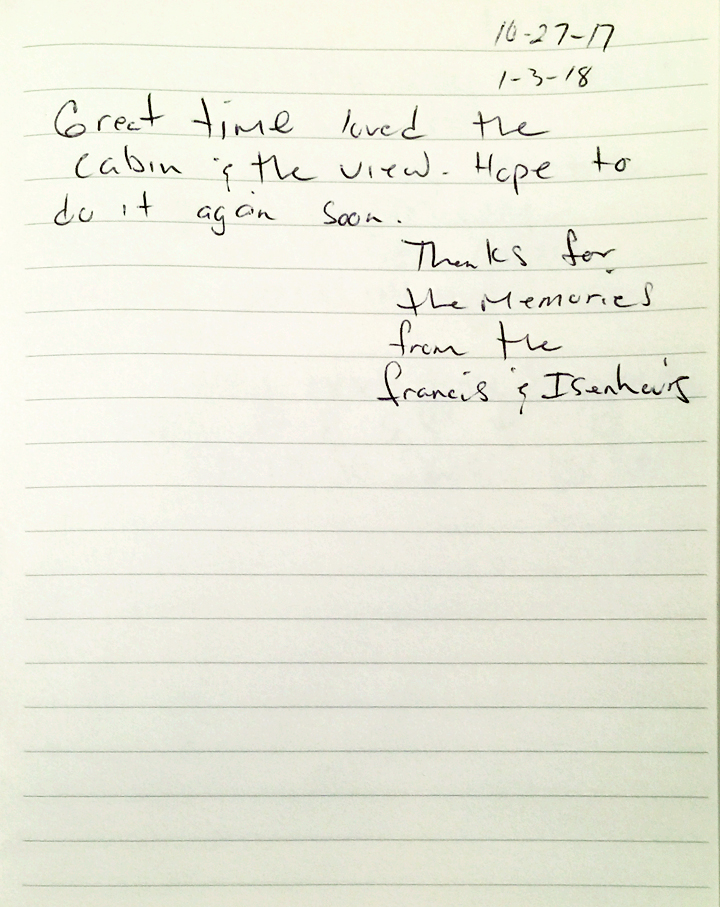 10-27-17
1-3-18
Great time loved the
cabin & the view. Hope to
do it again soon.
Thanks for
the Memories
from the
francis & Isenhour's